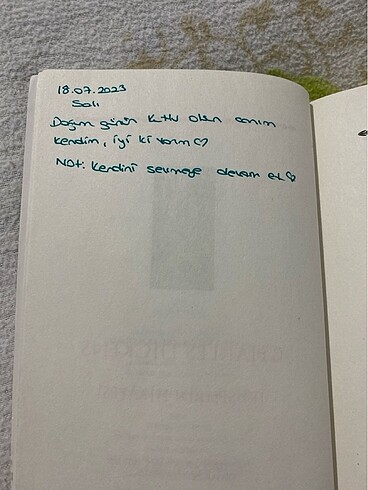 18.07.2023
Salı
Doğum günün kutlu olsun canım
kendim, iyi ki varım ♡
NOT: Kendini sevmeye devam et ♡